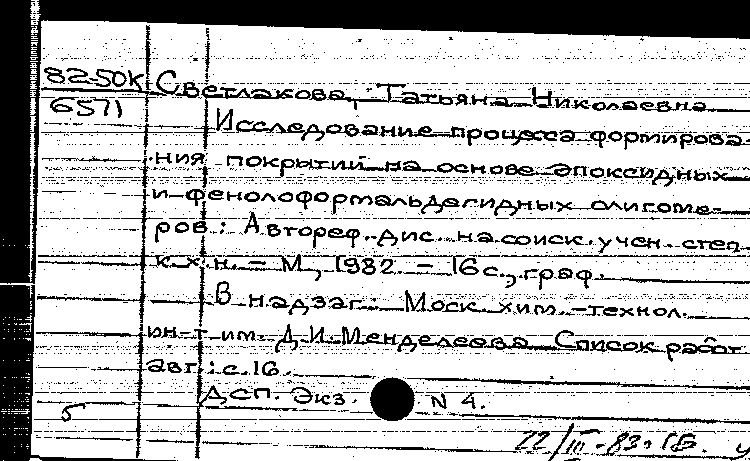 82-50К Светлакова, Татьяна Николаевна
6571
Исследование процесса формирова-
ния покрытий на основе эпоксидных
и фенолоформальдегидных олигоме-
ров: Автореф. дис. на соиск. учен. степ.
к.х.н. - М., 1982. - 16 с., граф.
В надзаг.: Моск. хим.-технол.
ин-т им. Д.И.Менделеева. Список работ
авт.: с.16.
ДСП. Экз. N 4.
5
22/III-83г.